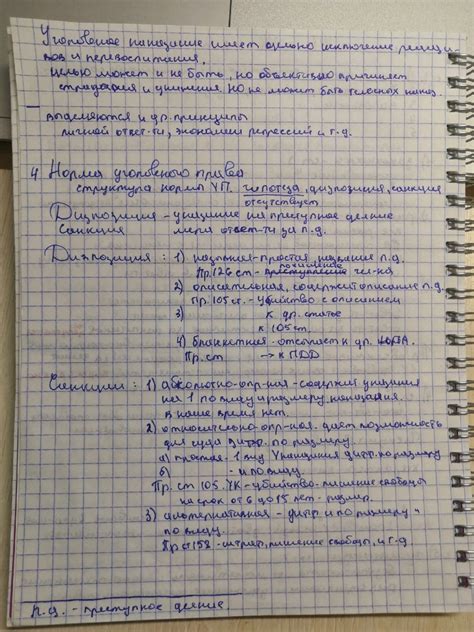 Уголовное наказание имеет целью исключение рециди-
вов и перевоспитания.
Целью может и не быть, но объективно причиняет
страдания и унижения. Но не может быть телесных наказ.
Выделяются и др. принципы
личной ответ-ти, экономии репрессий и т.д.
4. Норма уголовного права
структура нормы УП. гипотеза, диспозиция, санкция
отсутствует
Диспозиция - указание на преступное деяние
Санкция меры ответ-ти за п.д.
Диспозиция: 1) назывная-простая, название п.д.
похищение
Пр. 126 ст - преступление чел-ка
2) описательная, содержит описание п.д.
Пр. 105 ст. - убийство с описанием
3) к др. статье
к 105 ст.
4) бланкетная - отсылает к др. НПА.
Пр. ст → к ПДД
Санкции: 1) абсолютно-опр-ная - содержит указания
на 1 по виду и размеру наказания.
В наше время нет.
2) относительно-опр-ная. дает возможность
для суда дифф. по размеру.
а) простая - 1 вид наказания дифф. по размеру
б) - и по виду.
Пр. ст 105. УК - убийство - лишение свободы
на срок от 6 до 15 лет - размер.
3) альтернативная - дифф и по размеру и
по виду.
Пр ст 158 - штраф, лишение свободы, и т.д.
п.д. - преступное деяние.